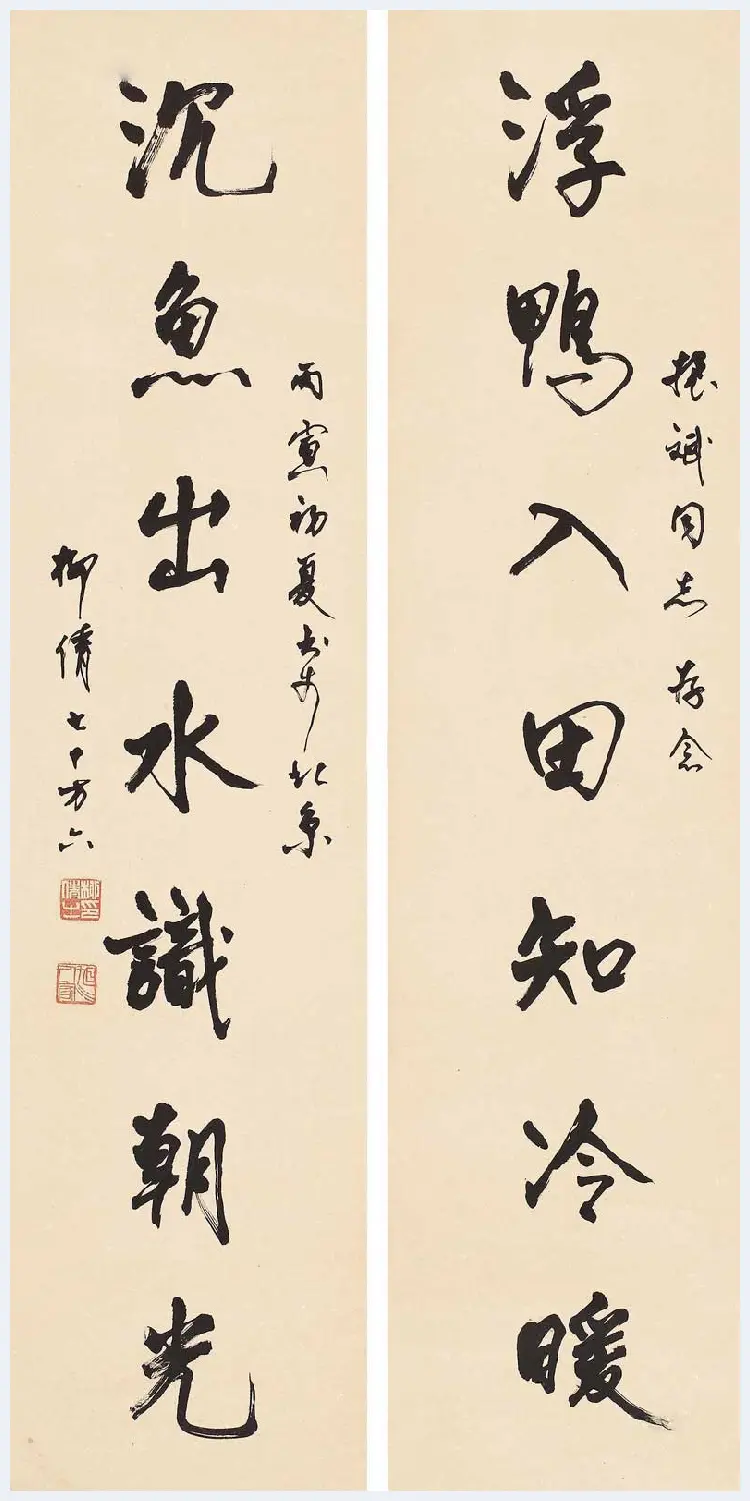 浮鴨入田知冷暖
振斌同志存念
沉魚出水識朝光
丙寅初夏書於北京
柳倩七十有六